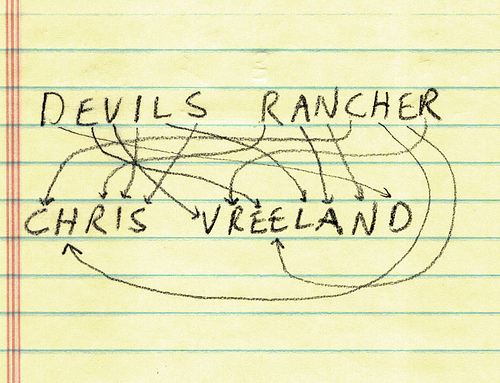 DEVILS RANCHER
CHRIS VREELAND